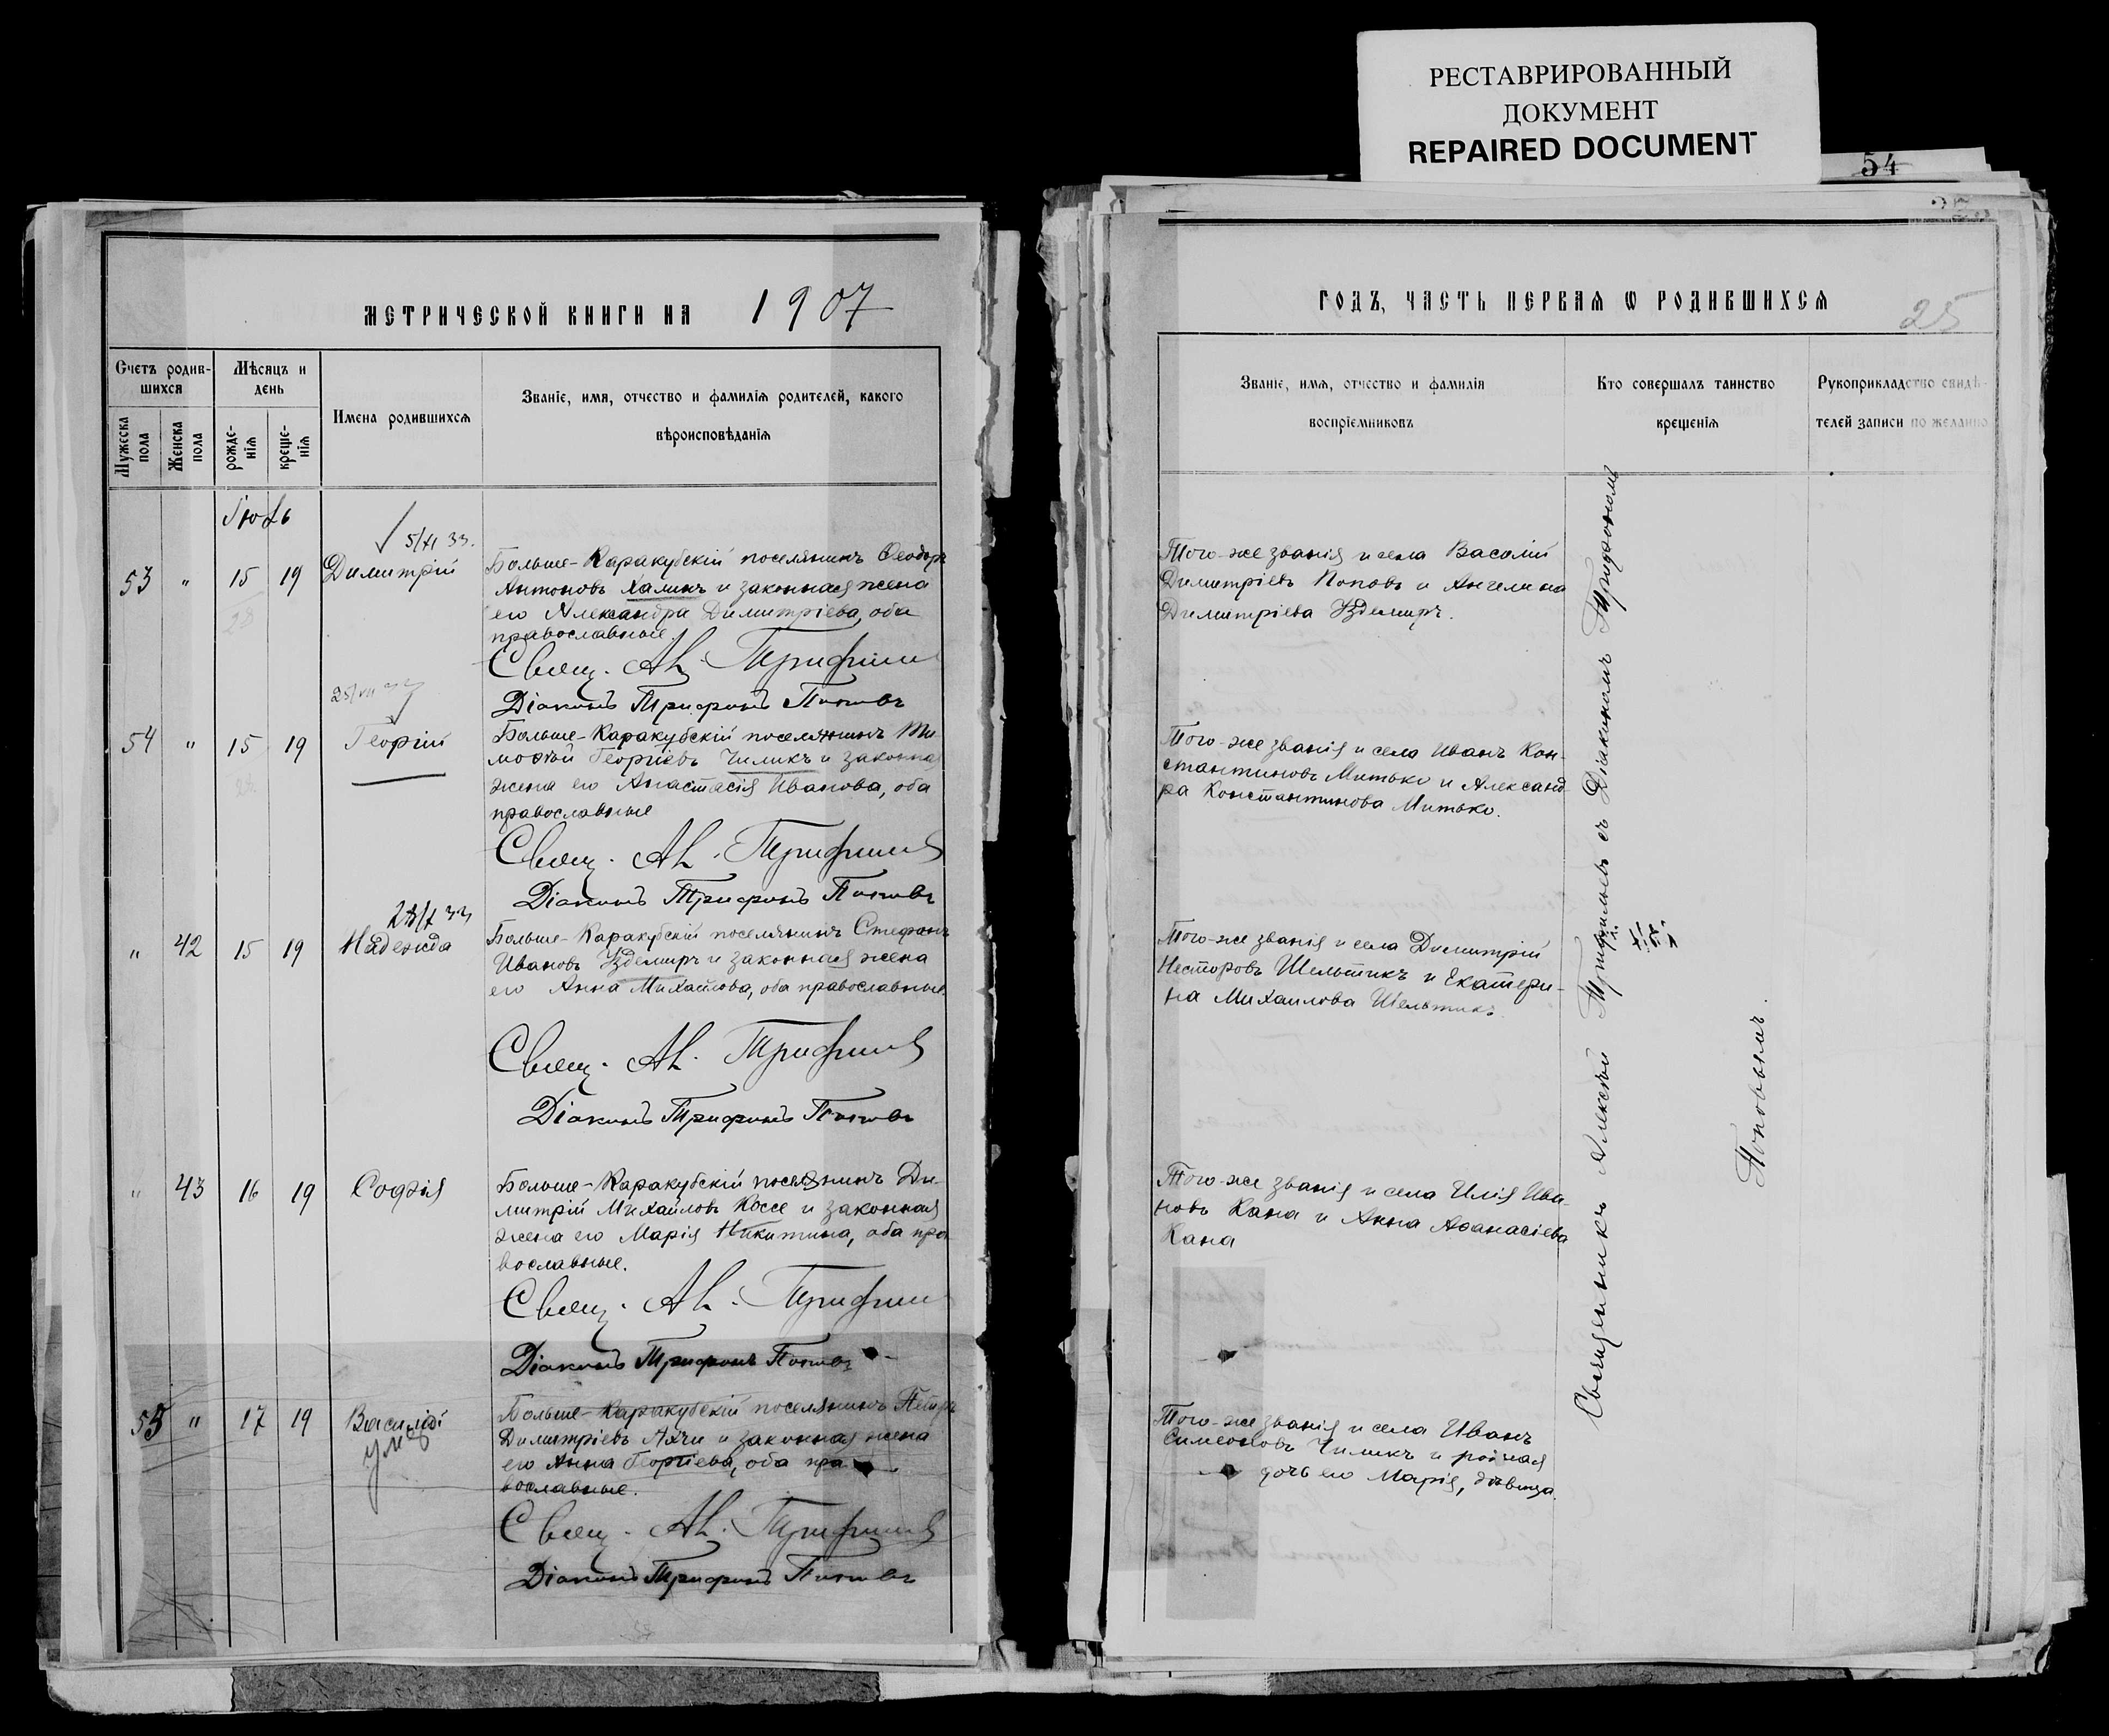 РЕСТАВРИРОВАННЫЙ
ДОКУМЕНТ
REPAIRED DOCUMENT
54
МЕТРИЧЕСКОЙ КНИГИ НА 1907
Счетъ родив-
шихся
Мѣсяцъ и
день
Имена родившихся
Званіе, имя, отчество и фамилія родителей, какого
вѣроисповѣданія
Мужеска
пола
Женска
пола
рожде-
нія
креще-
нія
Іюль
5/XI 33.
53 " 15 19 Димитрій
Больше-Каракубскій поселянинъ Ѳеодоръ
Антоновъ Халинъ и законная жена
его Александра Димитріева, оба
православные.
Свящ. Ал. Трифиліевъ
Діаконъ Трифонъ Поповъ
25/VII 33
54 " 15 19 Георгій
Больше-Каракубскій поселянинъ Ти-
моѳей Георгіевъ Чиликъ и законная
жена его Анастасія Иванова, оба
православные
Свящ. Ал. Трифиліевъ
Діаконъ Трифонъ Поповъ
" 42 15 19 Надежда
Больше-Каракубскій поселянинъ Стефанъ
Ивановъ Уздемиръ и законная жена
его Анна Михайлова, оба православные.
Свящ. Ал. Трифиліевъ
Діаконъ Трифонъ Поповъ
" 43 16 19 Софія
Больше-Каракубскій поселянинъ Ди-
митрій Михайловъ Коссе и законная
жена его Марія Никитина, оба пра-
вославные.
Свящ. Ал. Трифиліевъ
Діаконъ Трифонъ Поповъ
55 " 17 19 Василій
Больше-Каракубскій поселянинъ Петръ
Димитріевъ Ахчи и законная жена
его Анна Георгіева, оба пра-
вославные.
Свящ. Ал. Трифиліевъ
Діаконъ Трифонъ Поповъ
ГОДЪ, ЧАСТЬ ПЕРВАЯ Ѡ РОДИВШИХСЯ
25
Званіе, имя, отчество и фамилія
воспріемниковъ
Кто совершалъ таинство
крещенія
Рукоприкладство свидѣ-
телей записи по желанію
Того-же званія и села Василій
Димитріевъ Поповъ и Ангелина
Димитріева Уздемиръ.
Того-же званія и села Иванъ Кон-
стантиновъ Митько и Александ-
ра Константинова Митько.
Того-же званія и села Димитрій
Несторовъ Шельтикъ и Екатери-
на Михаилова Шельтикъ
Того-же званія и села Илія Ива-
новъ Кана и Анна Аѳанасіева
Кана
Того-же званія и села Иванъ
Симеоновъ Чиликъ и родная
дочь его Марія, дѣвица.
Священникъ Алексѣй Трифиліевъ съ Діакономъ Трифономъ
Поповымъ.